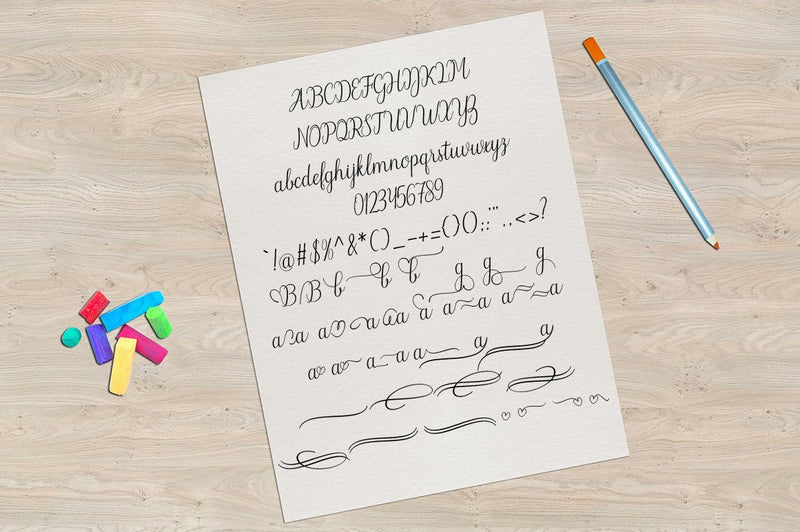 ABCDEFGHIJKLM
NOPQRSTUVWXYZ
abcdefghijklmnopqrstuvwxyz
0123456789
`!@#$%^&*()_-+={}();:"'.,<>?
B B b b b g g g
a a a a a a a a a a a
a a a a a a a